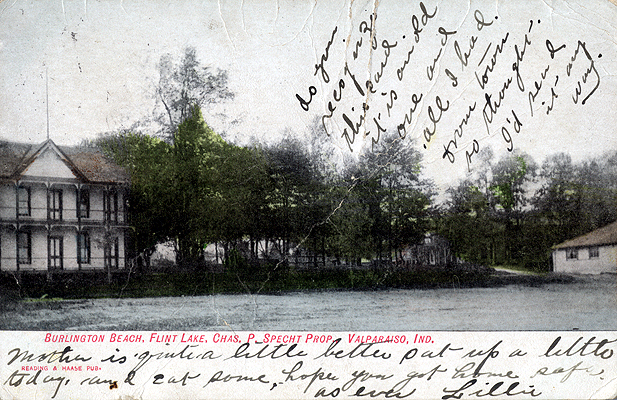 do you
recognize
this card.
it is an old
one and
all I had
from town
so thought
I'd send
it any
way.
BURLINGTON BEACH, FLINT LAKE, CHAS. P. SPECHT PROP. VALPARAISO, IND.
READING & HAASE PUB.
Mother is quite a little better sat up a little
today, and eat some, hope you got home safe.
as ever Lillie